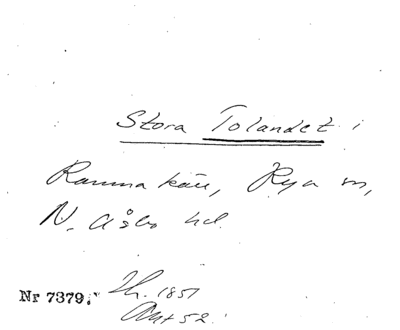 Stora Tolandet i
Ramnakärr, Rya sn,
N. Åsbo hd.
Nr 7379. 1851
Akt 52.